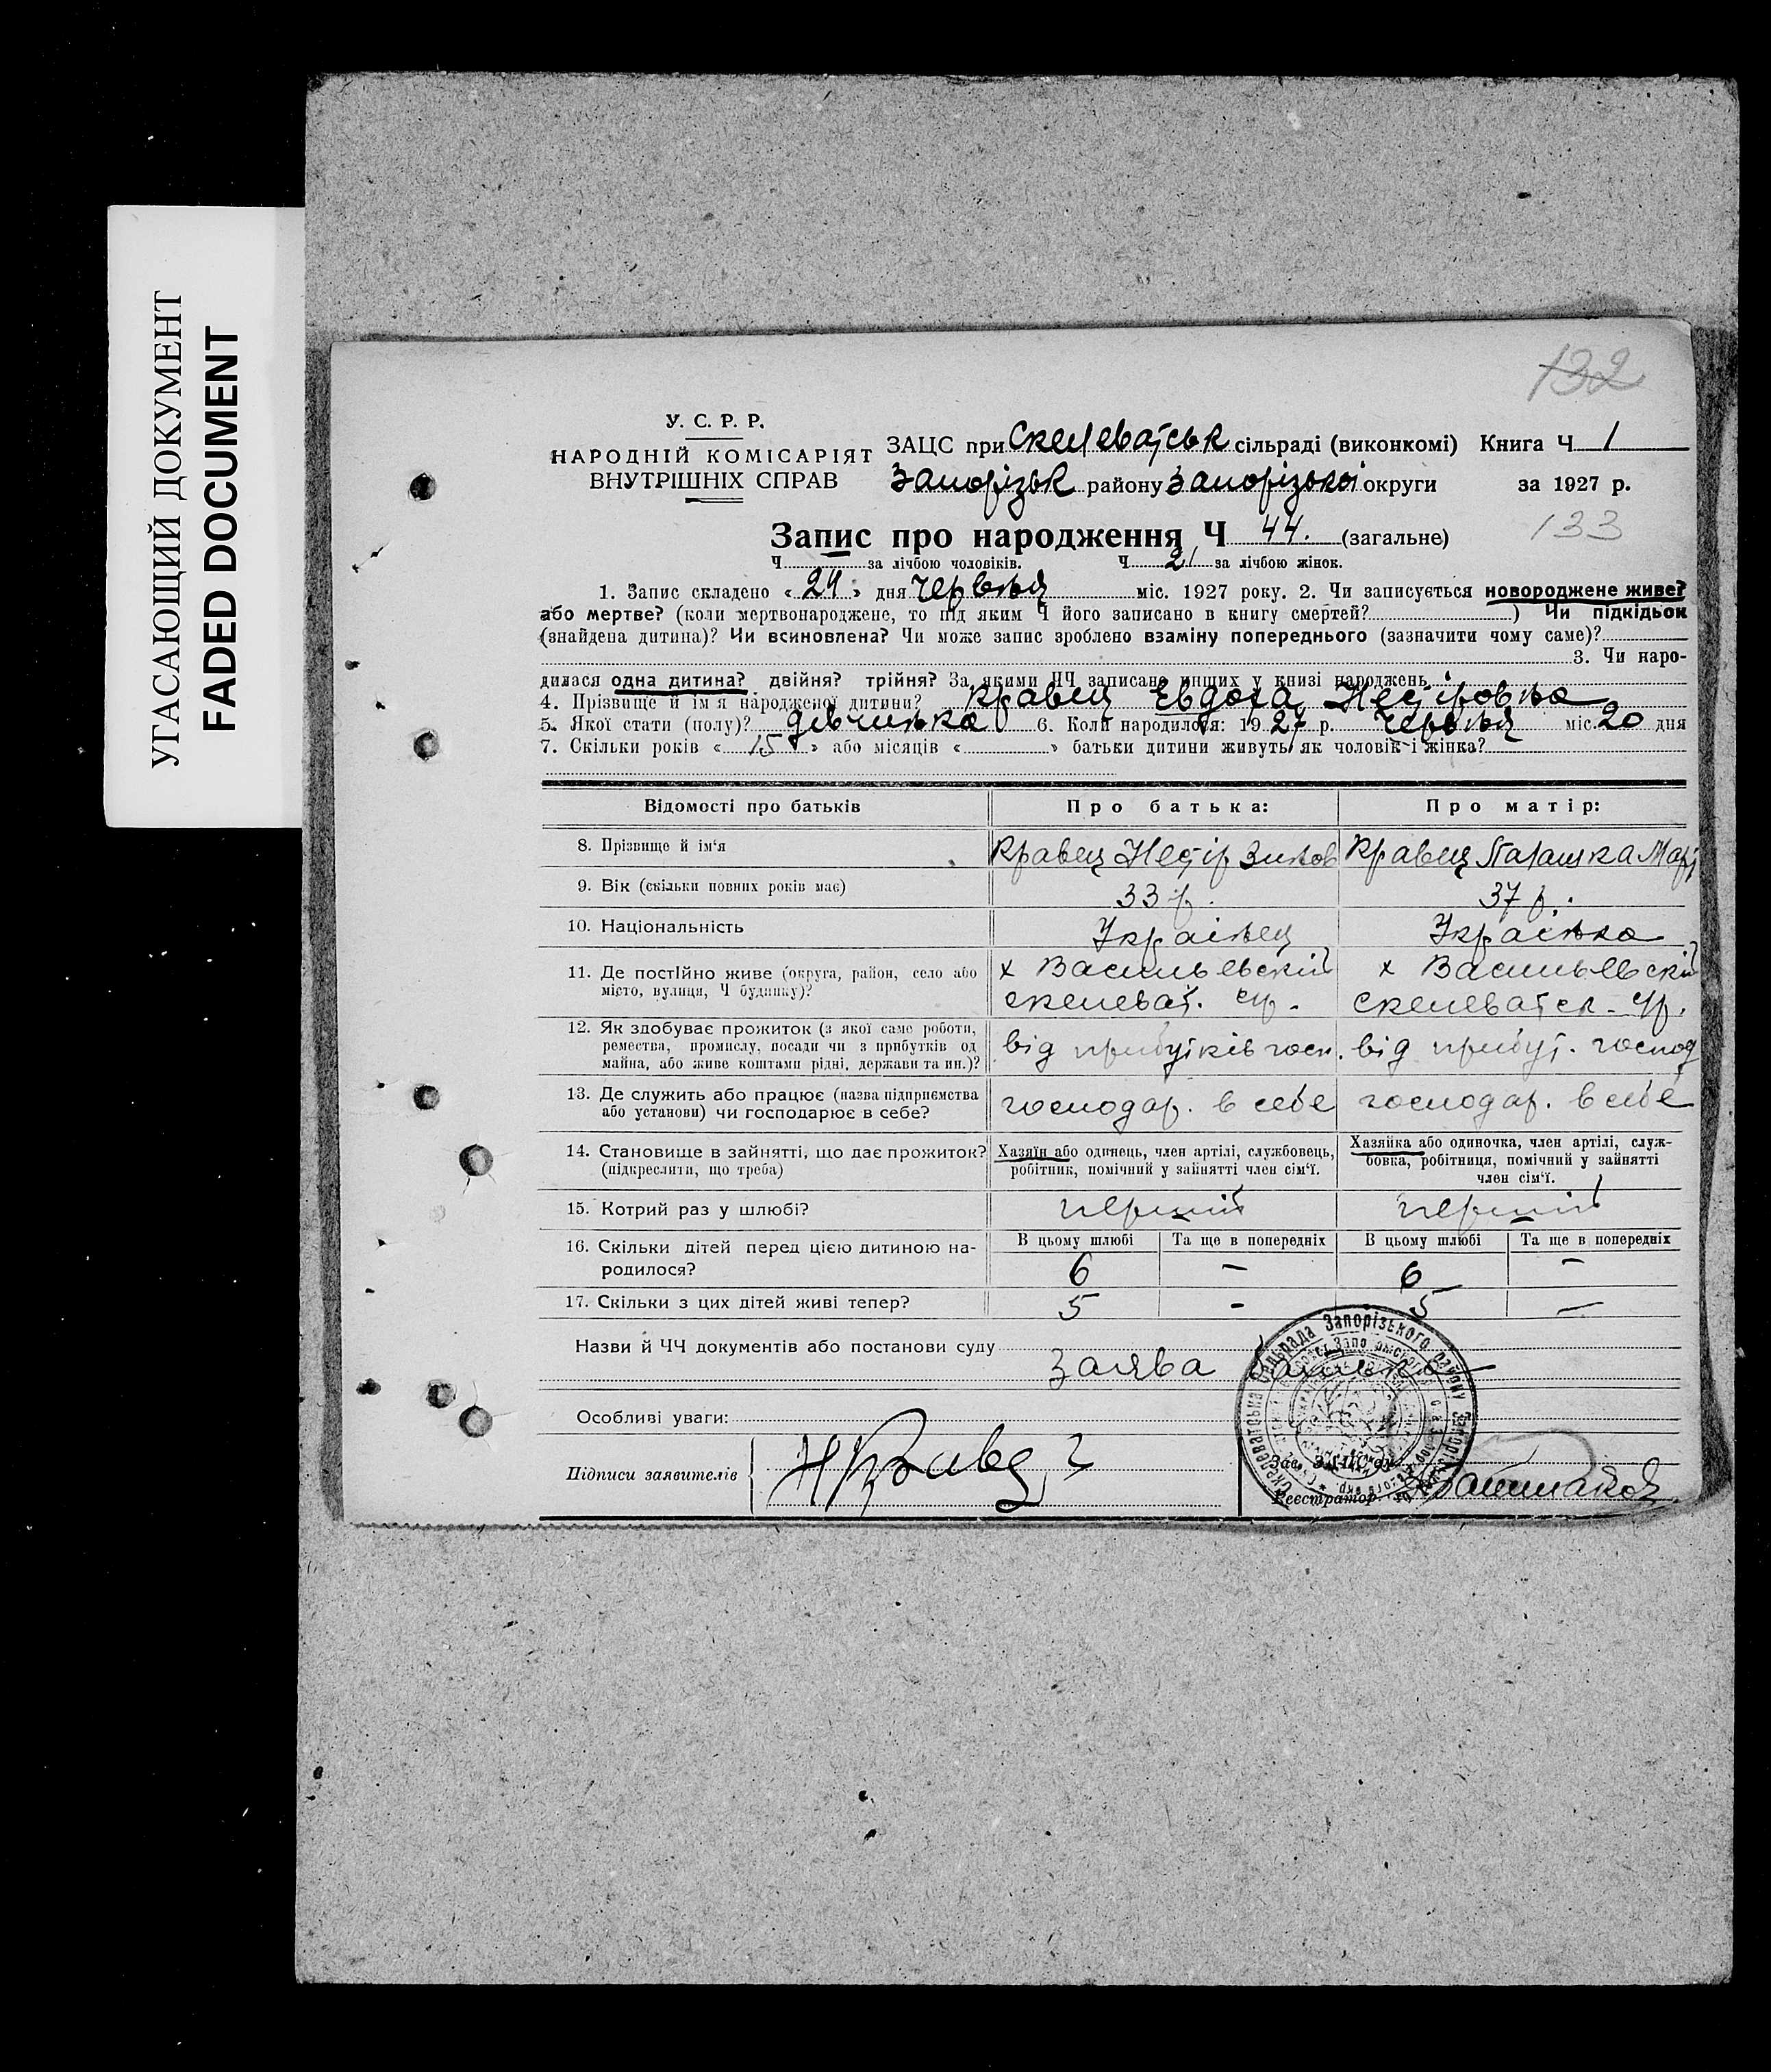 УГАСАЮЩИЙ ДОКУМЕНТ
FADED DOCUMENT
132
У. С. Р. Р.
НАРОДНІЙ КОМІСАРІЯТ
ВНУТРІШНІХ СПРАВ
ЗАЦС при Скелеватськ сільраді (виконкомі) Книга Ч 1
Запорізьк району Запорізької округи за 1927 р.
Запис про народження Ч 44. (загальне) 133
Ч за лічбою чоловіків. Ч 21 за лічбою жінок.
1. Запис складено « 24 » дня червня міс. 1927 року. 2. Чи записується новороджене живе?
або мертве? (коли мертвонароджене, то під яким Ч його записано в книгу смертей? ) Чи підкідьок
(знайдена дитина)? Чи всиновлена? Чи може запис зроблено взаміну попереднього (зазначити чому саме)?
3. Чи наро-
дилася одна дитина? двійня? трійня? За якими ЧЧ записано инших у книзі народжень
4. Прізвище й ім'я народженої дитини? Кравец Евдоха Нестіровна
5. Якої стати (полу)? дівчинка 6. Коли народилося: 1927 р. червня міс. 20 дня
7. Скільки років « 15 » або місяців « » батьки дитини живуть як чоловік і жінка?
Відомості про батьків Про батька: Про матір:
8. Прізвище й ім'я Кравец Нестір Зинов Кравец Парашка Март
9. Вік (скільки повних років має) 33 р. 37 р.
10. Національність Українец Українка
11. Де постІйно живе (округа, район, село або х Васильевский х Васильевский
місто, вулиця, Ч будинку)? скелеват. с/р. скелеватск. с/р.
12. Як здобуває прожиток (з якої саме роботи,
ремества, промислу, посади чи з прибутків од від прибутків госп. від прибут. господ
майна, або живе коштами рідні, держави та ин.)?
13. Де служить або працює (назва підприємства
або установи) чи господарює в себе? господар. в себе господар. в себе
14. Становище в зайнятті, що дає прожиток? Хазяїн або одинець, член артілі, службовець, Хазяйка або одиночка, член артілі, служ-
(підкреслити, що треба) робітник, помічний у зайнятті член сім'ї. бовка, робітниця, помічний у зайнятті
член сім'ї.
15. Котрий раз у шлюбі? перший перший
16. Скільки дітей перед цією дитиною на- В цьому шлюбі Та ще в попередніх В цьому шлюбі Та ще в попередніх
родилося? 6 – 6 –
17. Скільки з цих дітей живі тепер? 5 - 5 –
Назви й ЧЧ документів або постанови суду
Заява батька
Особливі уваги:
Підписи заявителів Н Кравец
Зав. ЗАЦС'ом
Реєстратор
Скелеватська сельрада Запорізького району